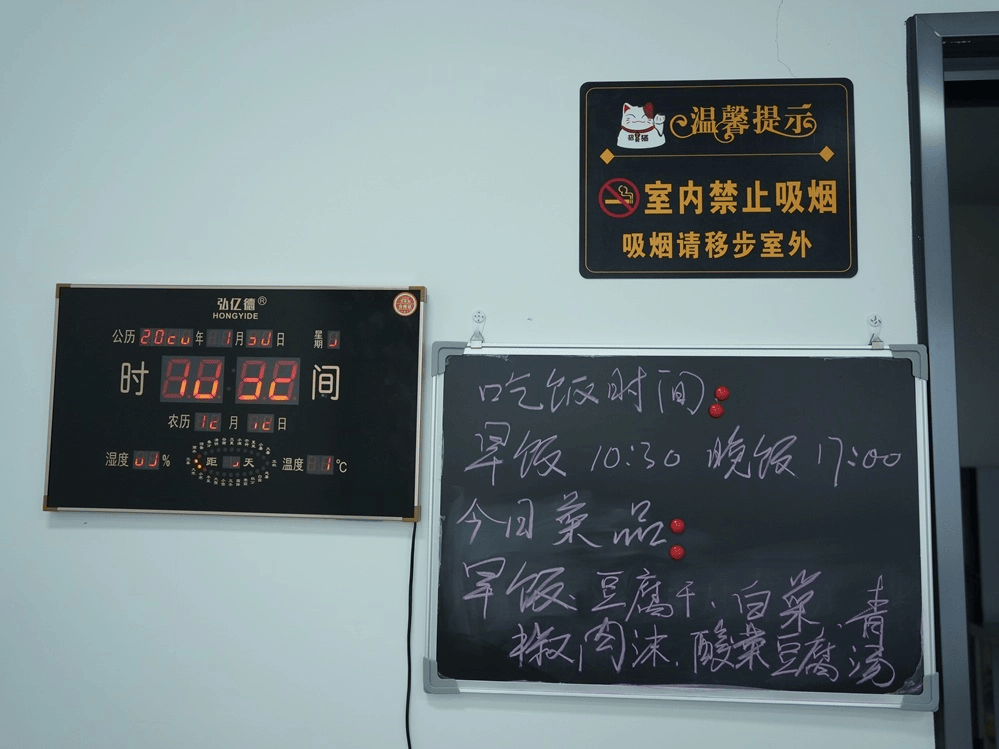 温馨提示
室内禁止吸烟
吸烟请移步室外
弘亿德®
HONGYIDE
公历 年 月 日 星期
时 间
农历 月 日
湿度 % 距 天 温度 ℃
吃饭时间:
早饭 10:30 晚饭 17:00
今日菜品:
早饭、豆腐干、白菜、青
椒肉沫、酸菜豆腐汤